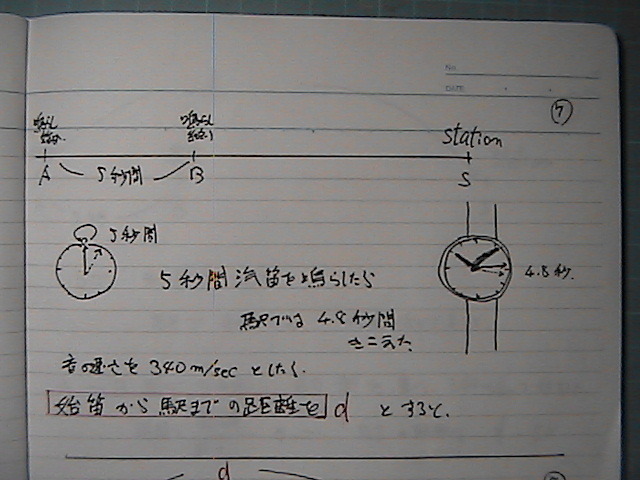 No.
DATE
⑦
鳴らし 始め
鳴らし 終わり
station
A 5秒間 B S
5秒間
5秒間汽笛を鳴らしたら
4.8秒.
駅では 4.8秒間
きこえた
音の速さを 340m/sec としたく.
始笛から駅までの距離を d とすると.
d